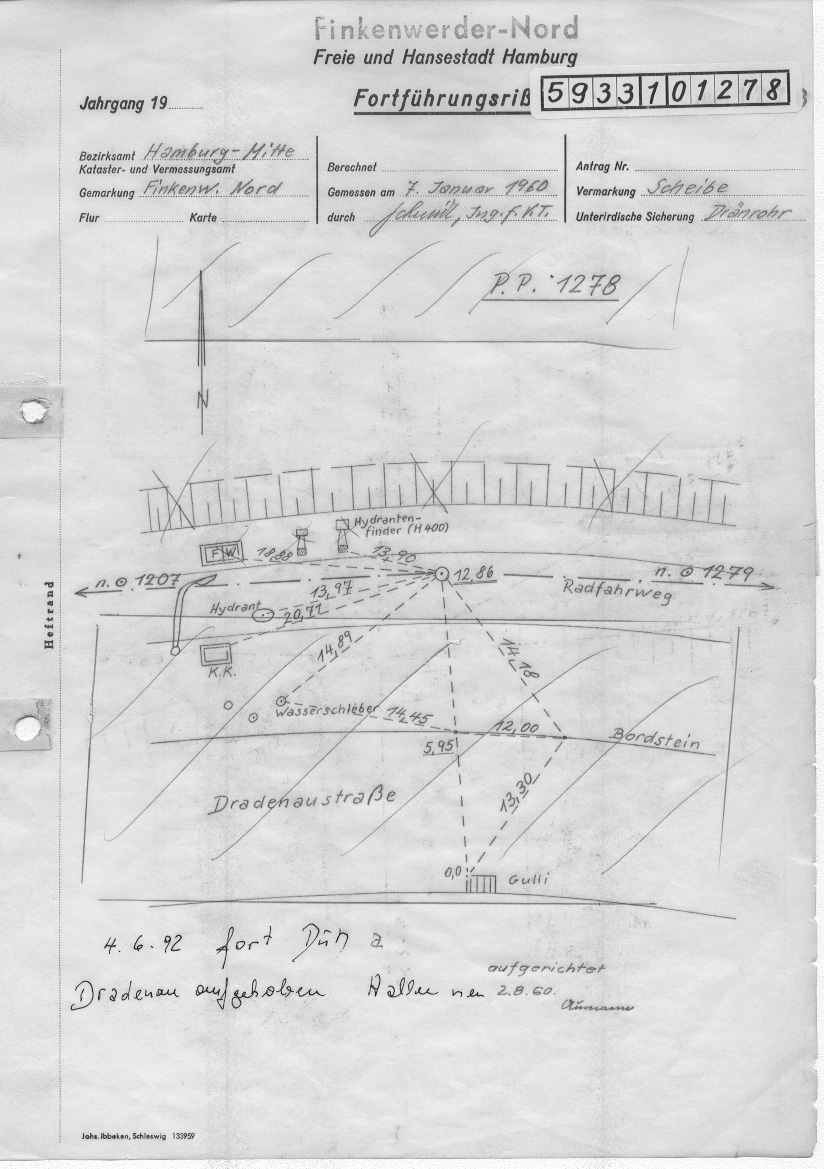 Finkenwerder-Nord
Freie und Hansestadt Hamburg
Jahrgang 19
Fortführungsriß 5933101278
Bezirksamt Hamburg-Mitte
Kataster- und Vermessungsamt
Gemarkung Finkenw. Nord
Flur Karte
Berechnet
Gemessen am 7. Januar 1960
durch Ing. f. V.T.
Antrag Nr.
Vermarkung Scheibe
Unterirdische Sicherung Dränrohr
P.P. 1278
N
Hydranten-
finder (H400)
FW 18,88 13,90
n. ⊙ 1207 12,86 n. ⊙ 1279
13,97 Radfahrweg
Hydrant 20,71
14,89 14,18
K.K.
Wasserschieber 14,45 12,00
5,95 Bordstein
Dradenaustraße 13,30
0,0 Gulli
4.6.92 fort
Dradenau aufgehoben
aufgerichtet
2.8.60.
Heftrand
Johs. Ibbeken, Schleswig 133959